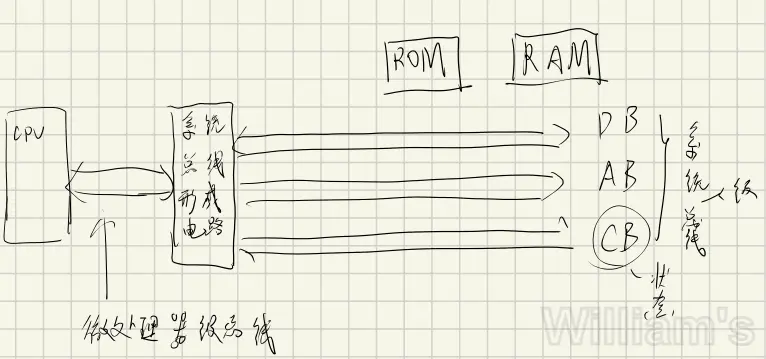 ROM
RAM
CPU
系统
总线
形成
电路
DB
AB
CB
系统总线
级
状态
微处理器级总线
William's